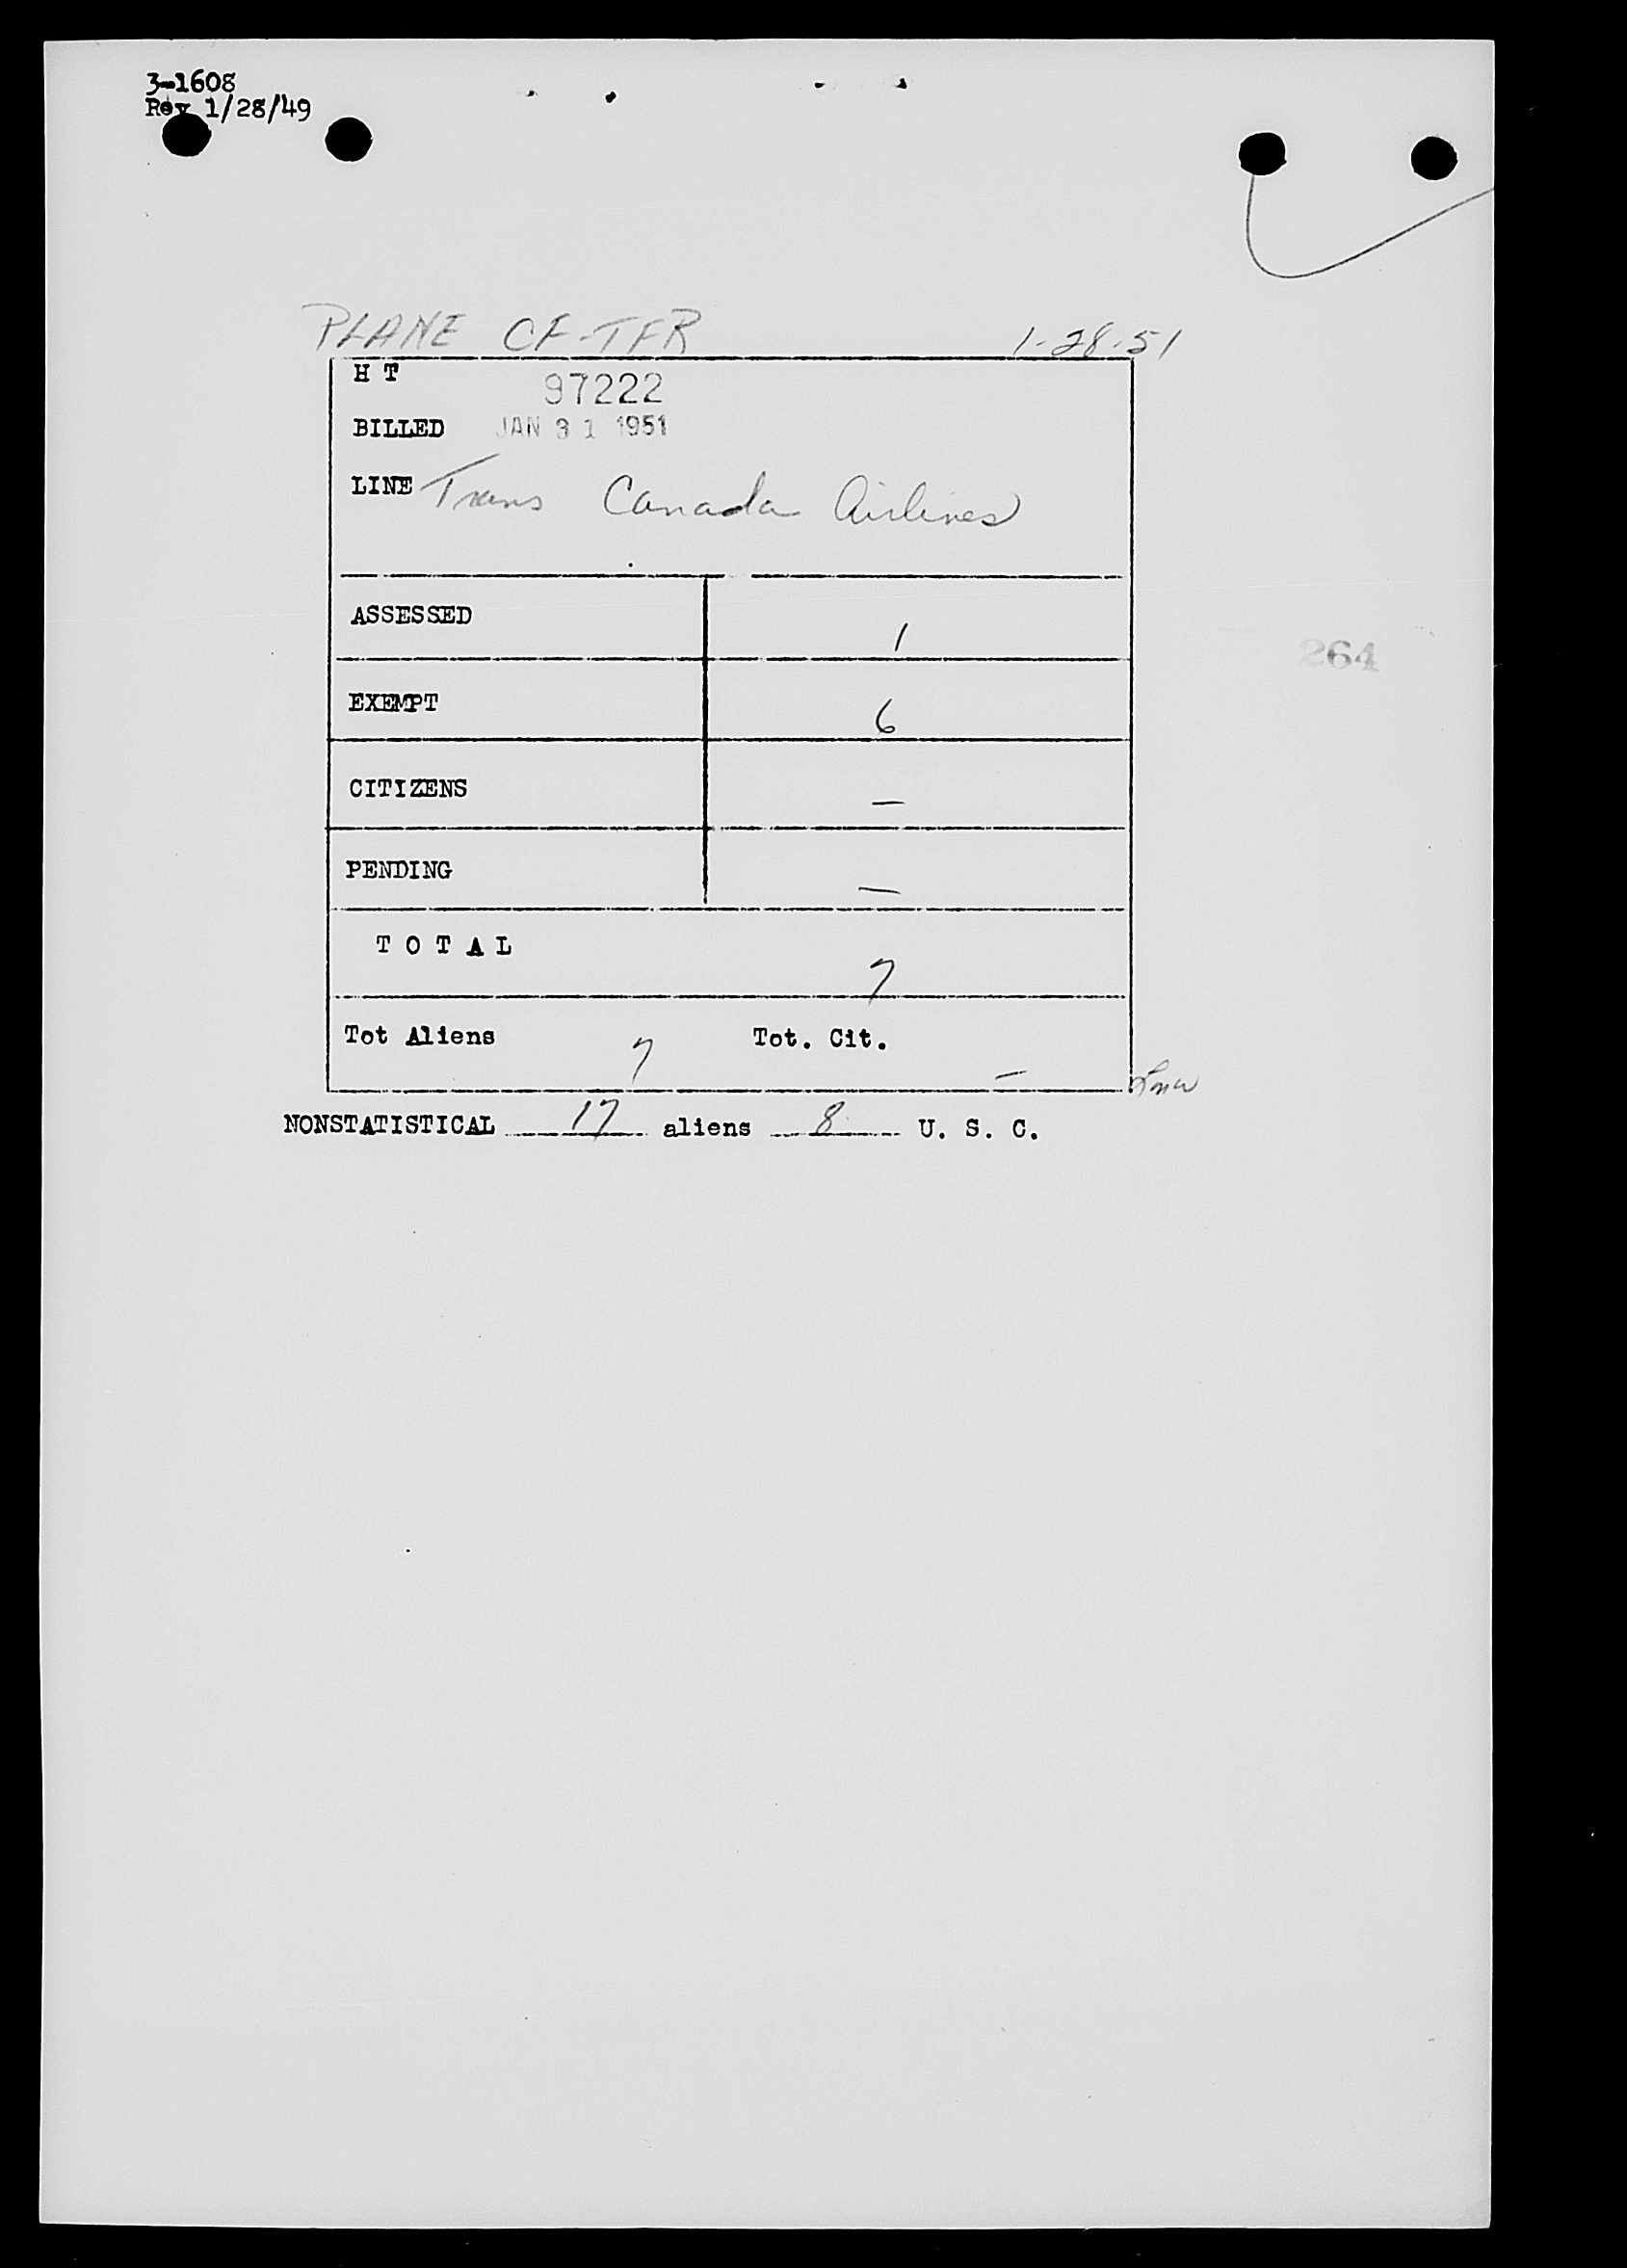 3-1608
Rev 1/28/49
PLANE CF-TFR 1-28-51
H T 97222
BILLED JAN 31 1951
LINE Trans Canada Airlines
ASSESSED 1
264
EXEMPT 6
CITIZENS —
PENDING —
T O T A L 7
Tot Aliens 7 Tot. Cit. —
NONSTATISTICAL 17 aliens 8 U. S. C.